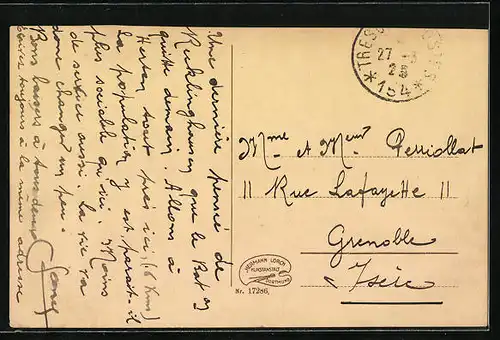 Une dernière pensée de
Recklinghausen que le Bat 09
quitte demain. Allons à
Herten tout près ici (6 Kms)
La population y est, paraît-il
plus sociable qu'ici. Moins
de service aussi. La vie va
donc changer un peu.
Bons baisers à tous deux
Ecrivez toujours à la même adresse
TRES
27 - 3
25
* 154 *
Mme et Meur Perriollat
11 Rue Lafayette 11
Grenoble
Isère
HERMANN LORCH
KUNSTANSTALT
DORTMUND
Nr. 17286.